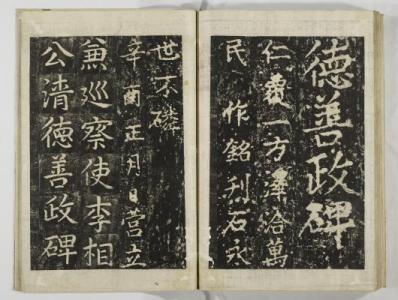 德善政碑
仁義一方澤洽萬
民作銘刋石永
世不磷
辛酉正月日营立
兼巡察使李相
公清德善政碑